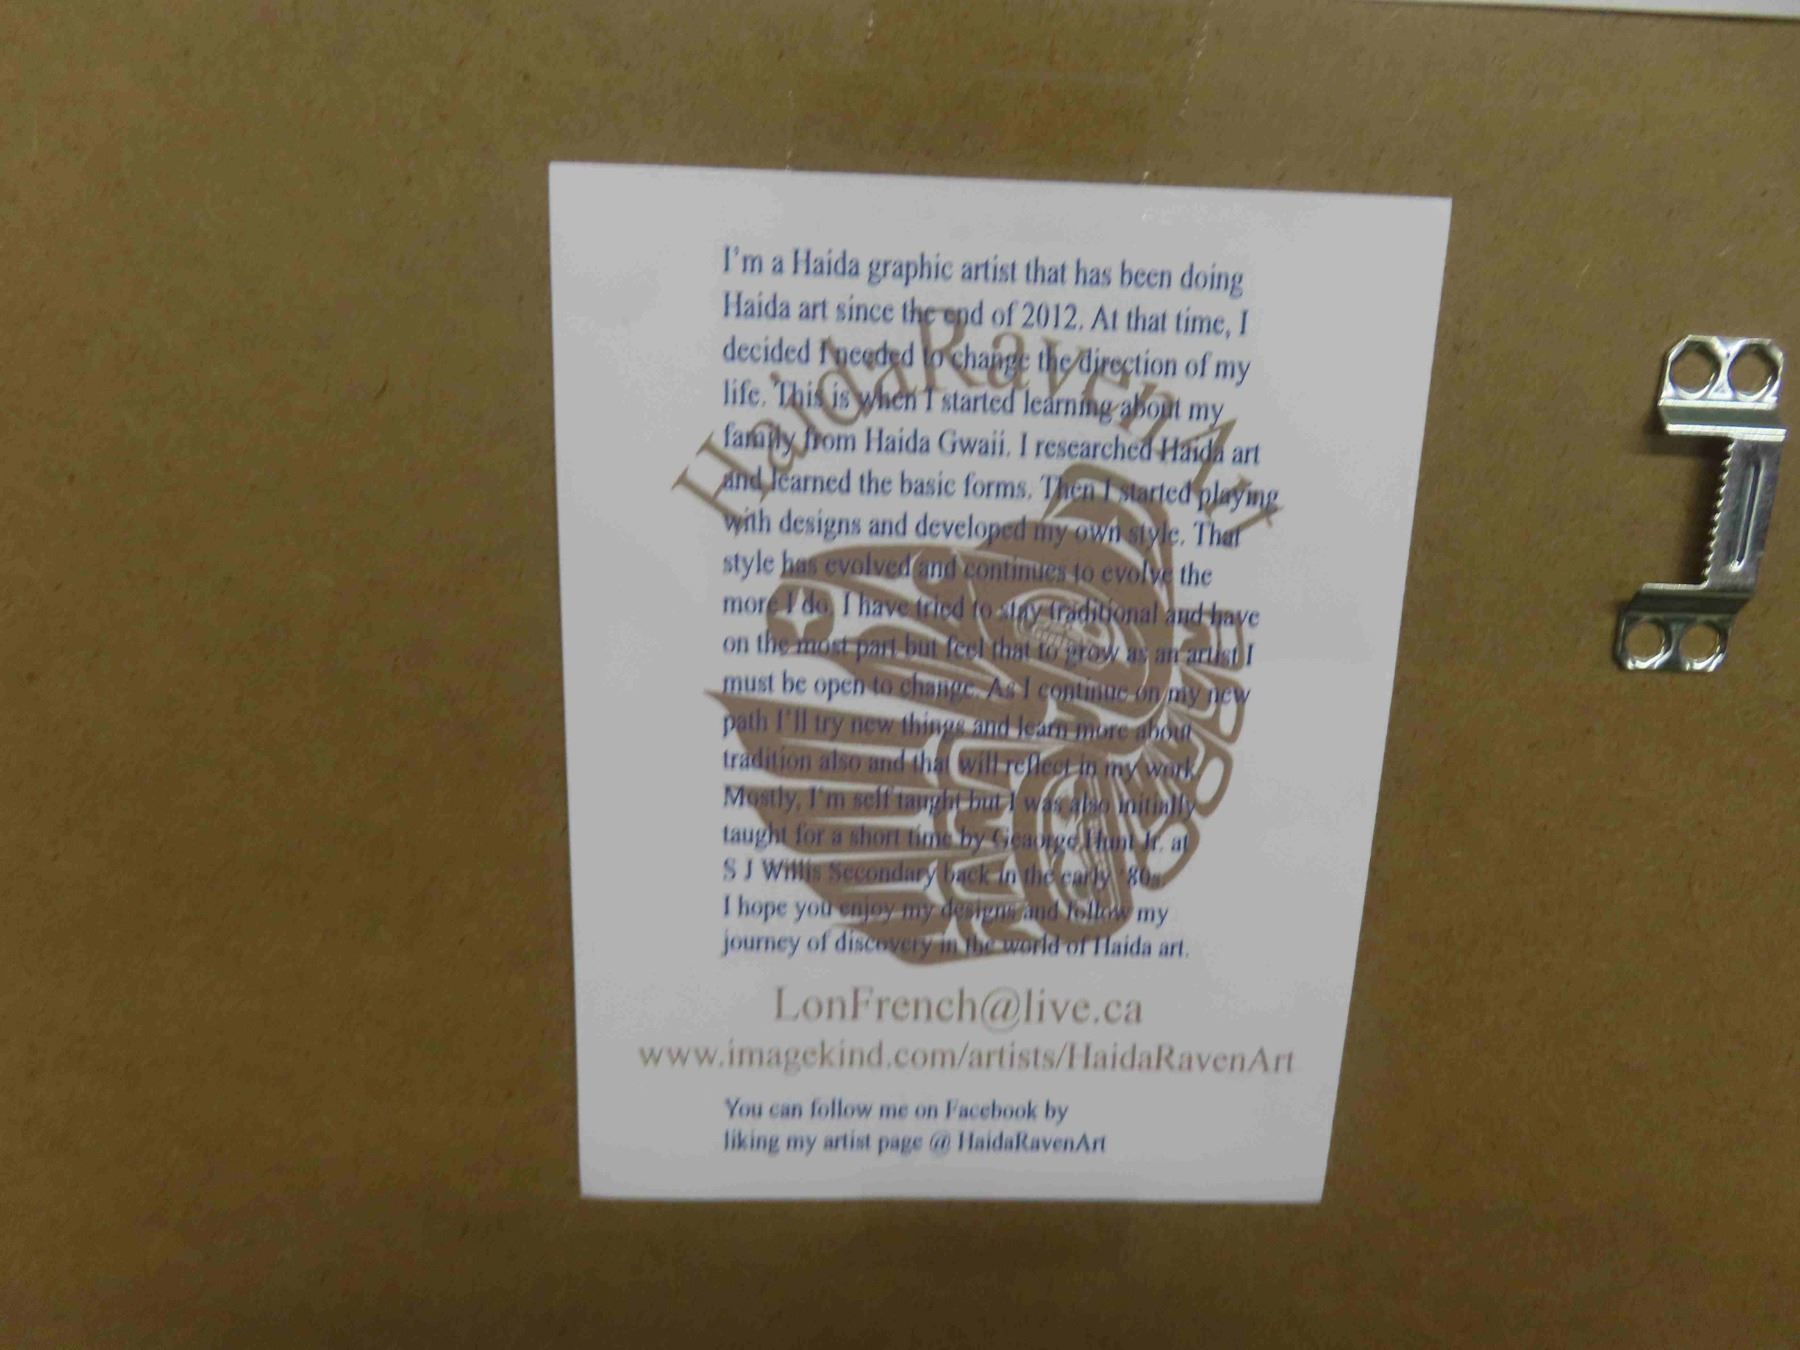 I'm a Haida graphic artist that has been doing
Haida art since the end of 2012. At that time, I
decided I needed to change the direction of my
life. This is when I started learning about my
family from Haida Gwaii. I researched Haida art
and learned the basic forms. Then I started playing
with designs and developed my own style. That
style has evolved and continues to evolve the
more I do. I have tried to stay traditional and have
on the most part but feel that to grow as an artist I
must be open to change. As I continue on my new
path I'll try new things and learn more about
tradition also and that will reflect in my work.
Mostly, I'm self taught but I was also initially
taught for a short time by Geaorge Hunt Jr. at
S J Willis Secondary back in the early '80s.
I hope you enjoy my designs and follow my
journey of discovery in the world of Haida art.
HaidaRavenArt
LonFrench@live.ca
www.imagekind.com/artists/HaidaRavenArt
You can follow me on Facebook by
liking my artist page @ HaidaRavenArt